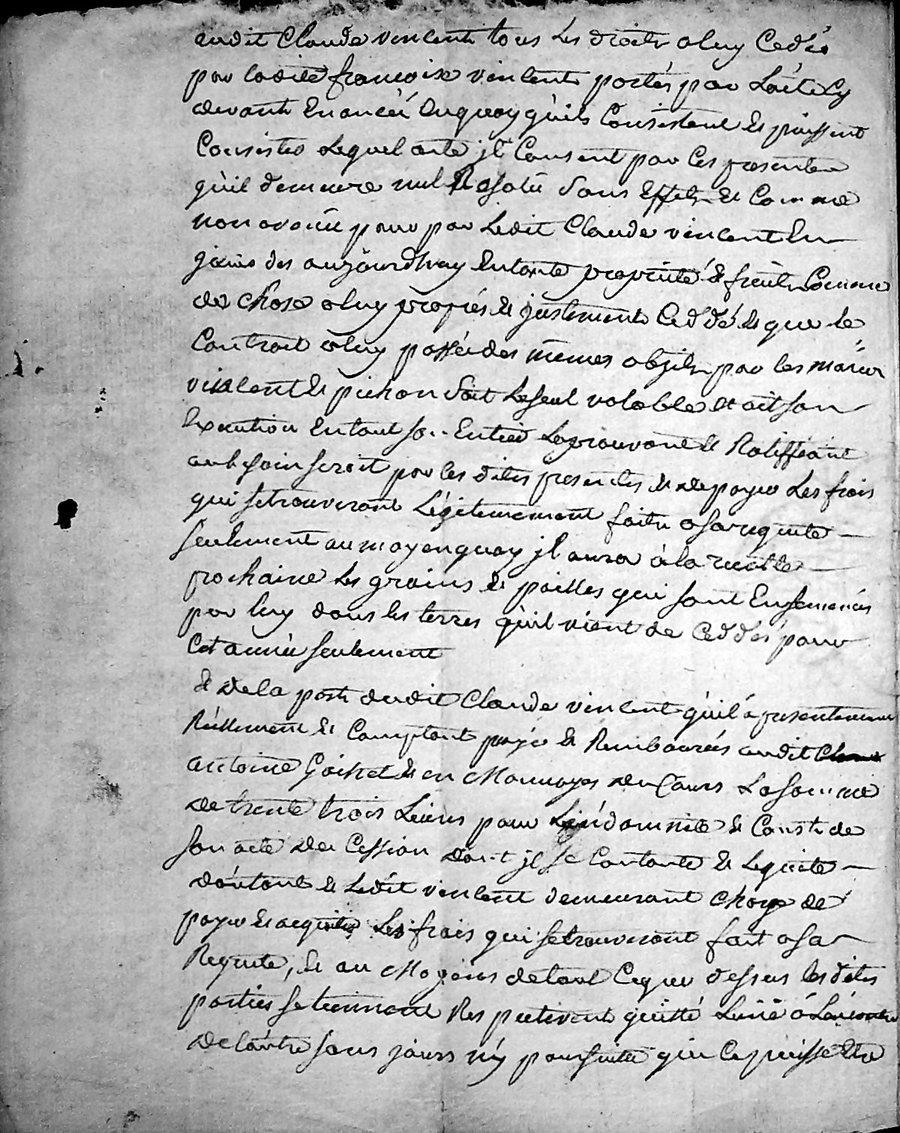 audit Claude vincent tous les droits a luy Cedés
par ladite francoise vincent portés par L'acte Cy
devant Enoncéé Enquoy qu'ils Consistent & puissent
Consister Lequel acte jl Consent par Ces presentes
qu'il demeure nul & sans Effet & Comme
non avoüé pour par Ledit Claude vincent En
joüir des aujourdhuy Entoute proprieté & fruits Comme
de chose a luy propres & justement Ceddéé & que le
Contrait a luy passé des mêmes objets par les mariés
vincent & pichon soit Leseul valable & ait son
Execution Entout son Entier Laprouvant & Ratiffiant
aubesoin seroit par les dites presentes & de payer Les frais
qui setrouveront Légitemement faits a sa requite
seulement au moyen quoy jl aura à la recolte
prochaine Les grains & pailles qui sont Ensemencés
par luy dans les terres qu'il vient de Ceddés pour
Cet année seulement
& de la part dudit Claude vincent qu'il á presentement
Réellement & Comptant payé & Remboursés audit
antoine & en Monnoyes de Cours Lasomme
de trente trois Livres pour L'jndamnité & Couts de
son acte de Cession dont jl se Contante & Lequite
d'autant & Ledit vincent demeurant charge de
payer & acquiter Les frais qui setrouveront fait a sa
Requite, & au Moyens detout Ceque dessus les dites
parties setiennent Respectivent quitté L'une á L'encontre
de L'autre sans jours n'y poursuite qui Ce puisse Etre